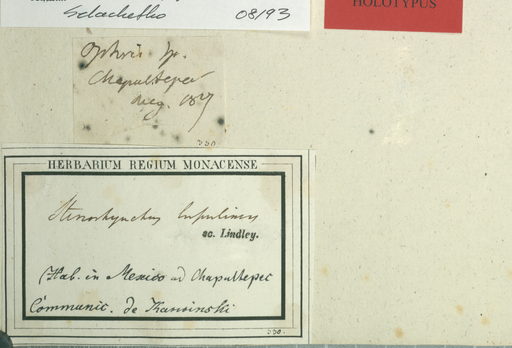 Szlachetko 08/93
HOLOTYPUS
Ophris sp.
Chapultepec
Aug. 187
330
HERBARIUM REGIUM MONACENSE
Stenorhynchus lupulinus
sc. Lindley.
Hab. in Mexico ad Chapultepec
Communic. de Karwinski
330.